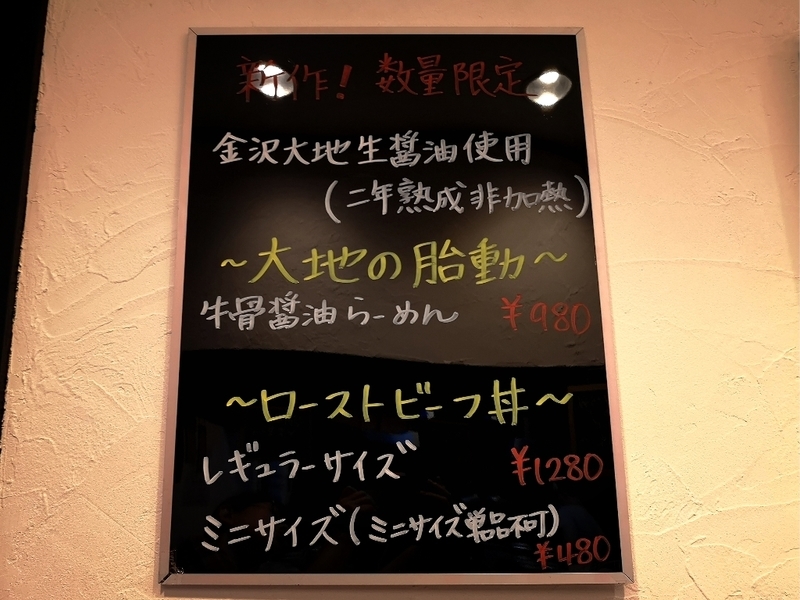 新作! 数量限定
金沢大地生醬油使用
(二年熟成非加熱)
～大地の胎動～
牛骨醬油らーめん ￥980
～ローストビーフ丼～
レギュラーサイズ ￥1280
ミニサイズ(ミニサイズ単品不可)
￥480